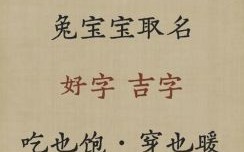 兔宝宝取名
好字 吉字
吃也饱·穿也暖